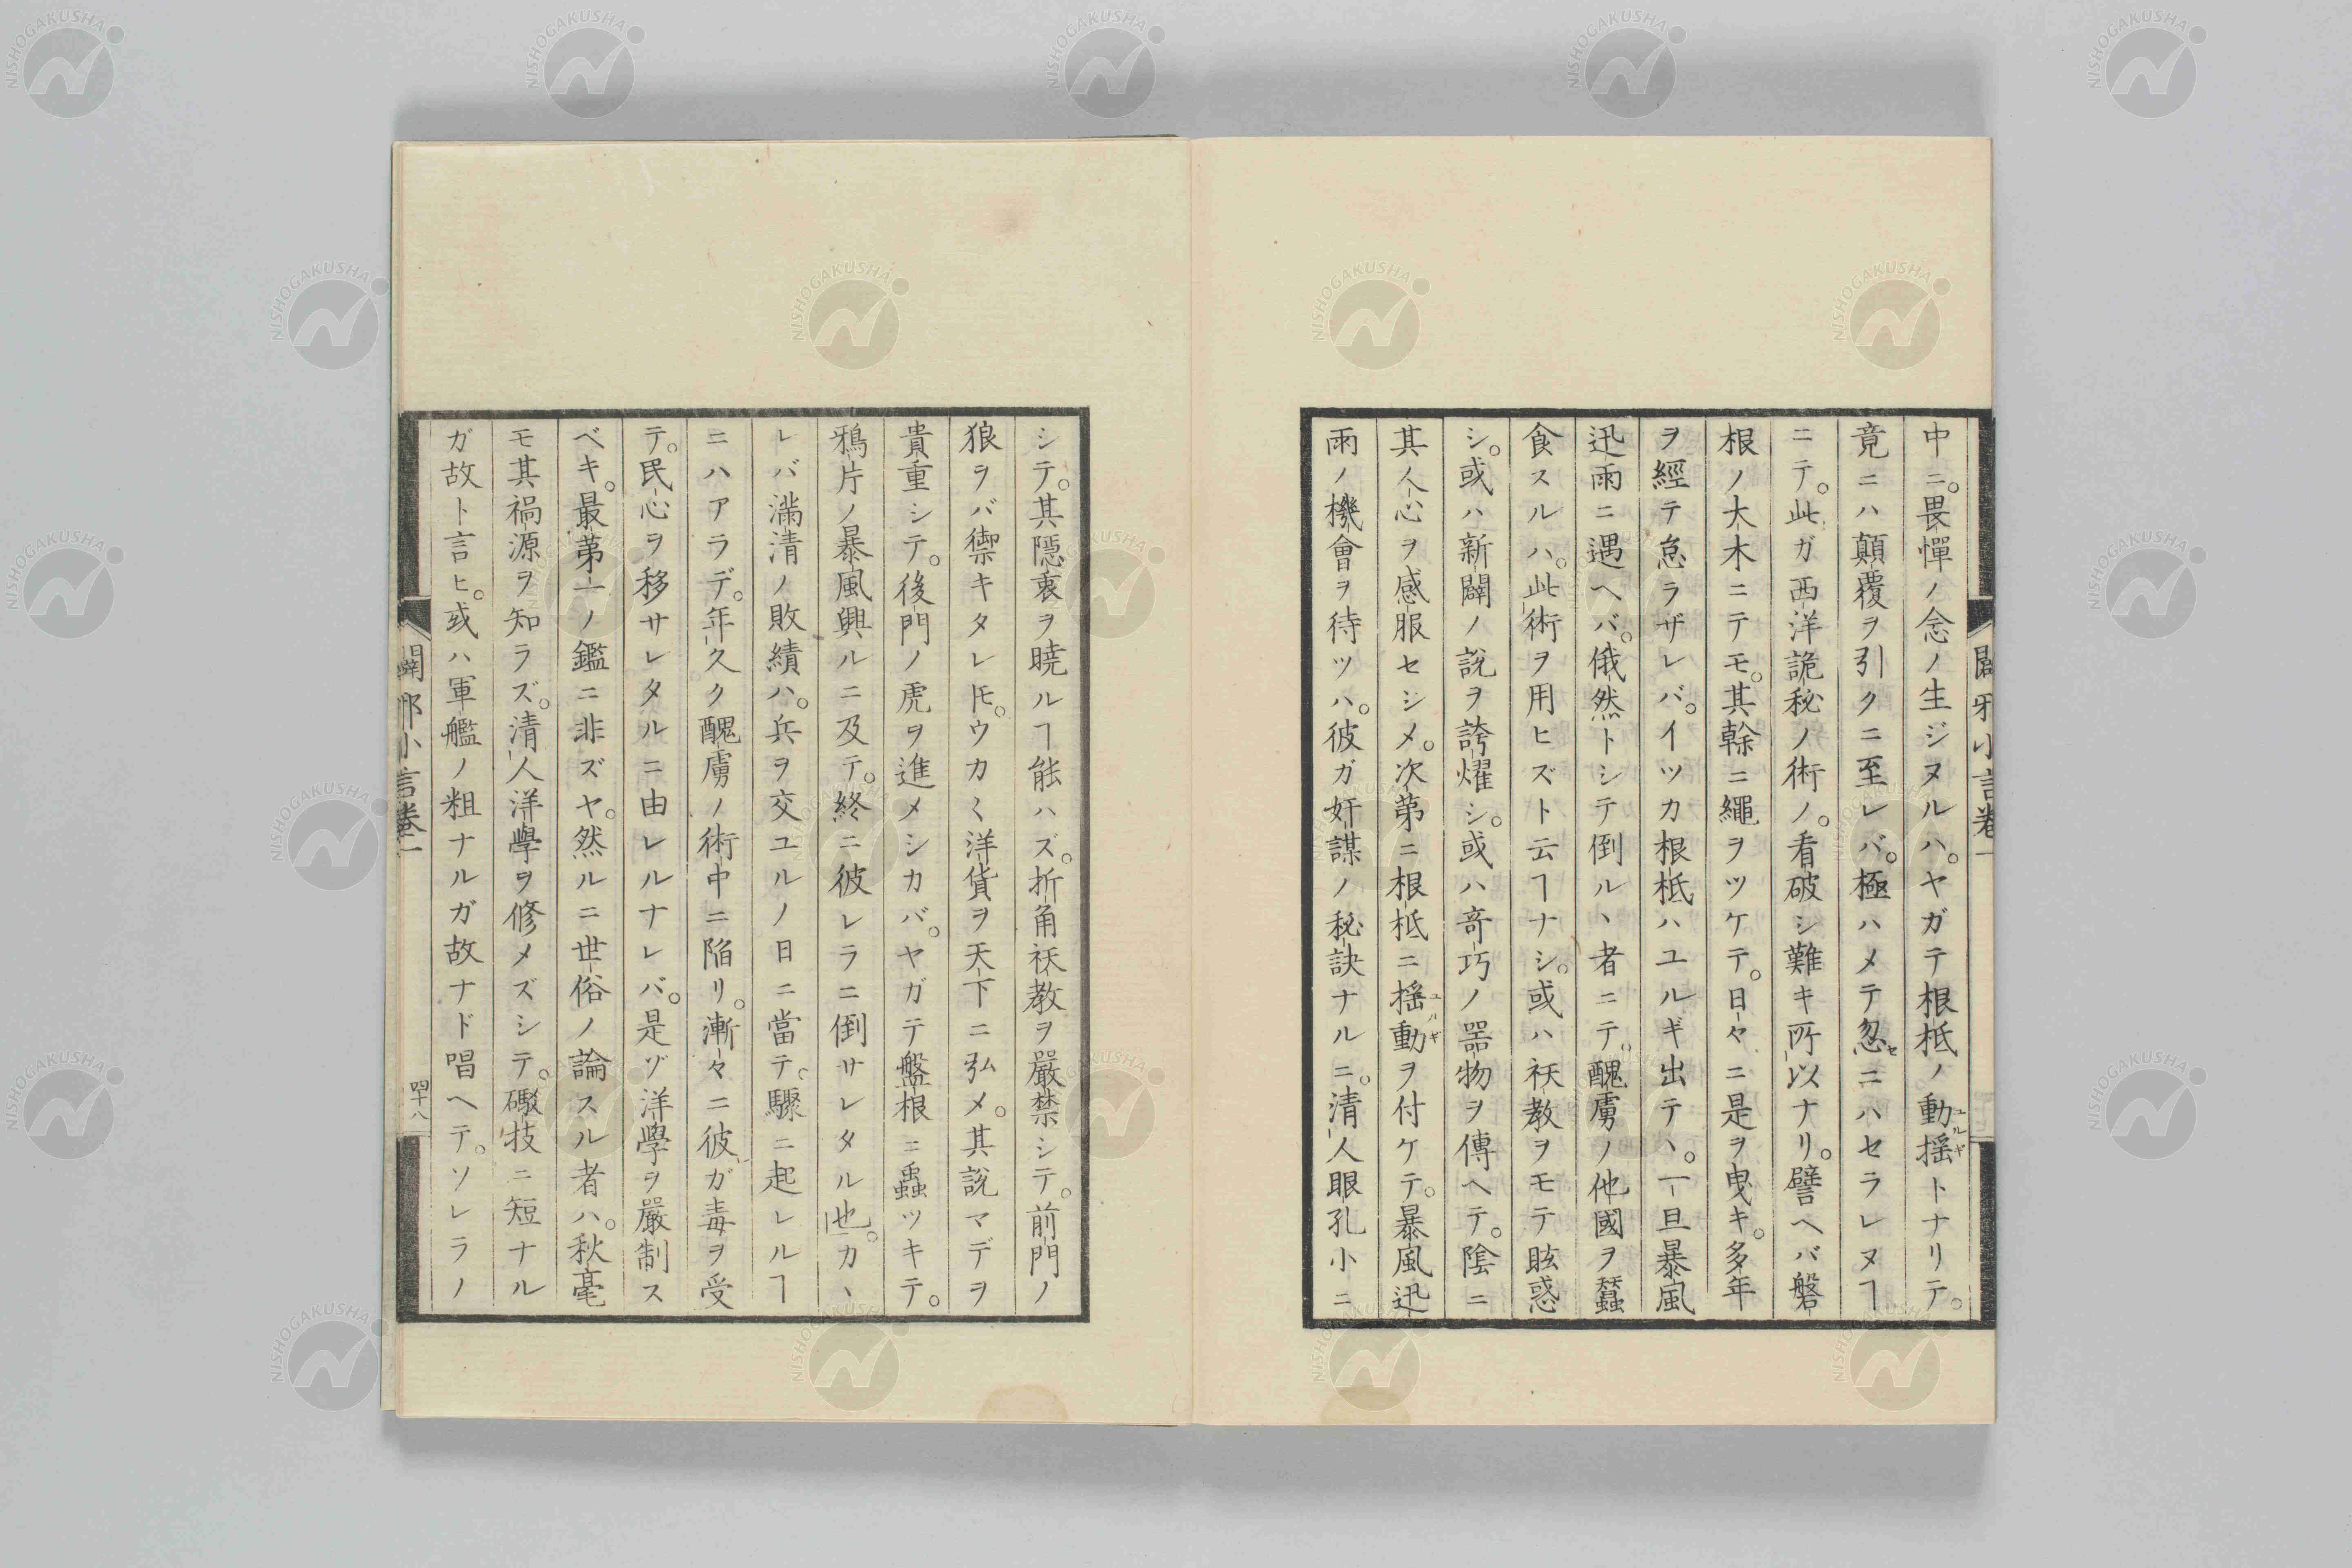 中ニ。畏憚ノ念ノ生ジヌルハ。ヤガテ根柢ノ動揺トナリテ。
竟ニハ顛覆ヲ引クニ至レバ。極ハメテ忽ニハセラレヌヿ
ニテ。此ガ西洋詭秘ノ術ノ。看破シ難キ所以ナリ。譬ヘバ磐
根ノ大木ニテモ。其幹ニ繩ヲツケテ。日々ニ是ヲ曳キ。多年
ヲ經テ怠ラザレバ。イツカ根柢ハユルギ出テヽ。一旦暴風
迅雨ニ遇ヘバ。俄然トシテ倒ルヽ者ニテ。醜虜ノ他國ヲ蠶
食スルハ。此術ヲ用ヒズト云ヿナシ。或ハ祅教ヲモテ眩惑
シ。或ハ新闢ノ說ヲ誇燿シ。或ハ奇巧ノ噐物ヲ傳ヘテ。陰ニ
其人心ヲ感服セシメ。次第ニ根柢ニ揺動ヲ付ケテ。暴風迅
雨ノ機會ヲ待ツハ。彼ガ奸謀ノ秘訣ナルニ。清人眼孔小ニ
闢邪小言卷一
シテ。其隱衷ヲ曉ルヿ能ハズ。折角祅教ヲ嚴禁シテ。前門ノ
狼ヲバ禦キタレ𪜈。ウカ〱洋貨ヲ天下ニ弘メ。其說マデヲ
貴重シテ。後門ノ虎ヲ進メシカバ。ヤガテ盤根ニ蟲ツキテ。
鴉片ノ暴風興ルニ及テ。終ニ彼レラニ倒サレタル也。カヽ
レバ滿清ノ敗績ハ。兵ヲ交ユルノ日ニ當テ。驟ニ起レルヿ
ニハアラデ。年久ク醜虜ノ術中ニ陷リ。漸々ニ彼ガ毒ヲ受
テ。民心ヲ移サレタルニ由レルナレバ。是ゾ洋學ヲ嚴制ス
ベキ。最第一ノ鑑ニ非ズヤ。然ルニ世俗ノ論スル者ハ。秋毫
モ其禍源ヲ知ラズ。清人洋學ヲ修メズシテ。礮技ニ短ナル
ガ故ト言ヒ。或ハ軍艦ノ粗ナルガ故ナド唱ヘテ。ソレラノ
闢邪小言卷一
四十八
NISHOGAKUSHA